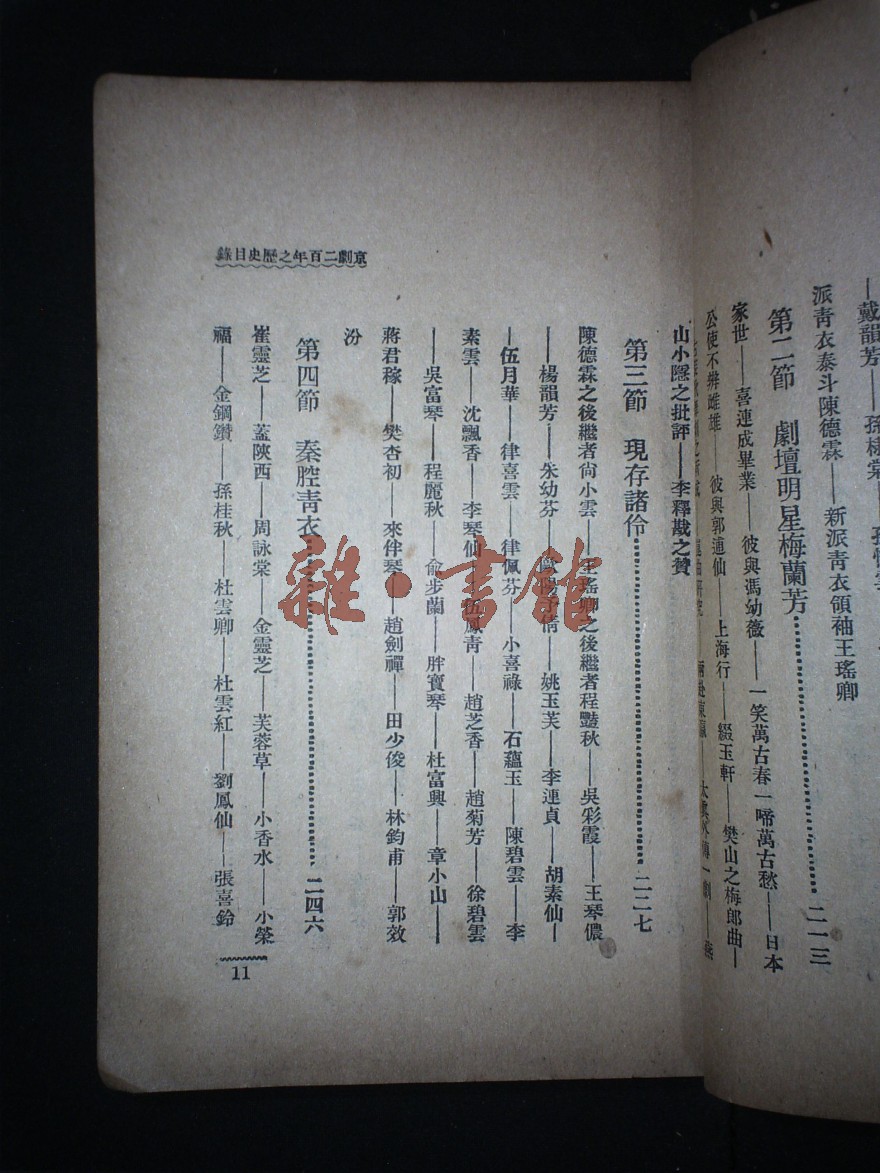 —戴韻芳——孫棣棠——孫怡雲
派靑衣泰斗陳德霖——新派靑衣領袖王瑤卿
第二節 劇壇明星梅蘭芳…………二一三
家世——喜連成畢業——彼與馮幼薇——一笑萬古春一啼萬古愁——日本
公使不辨雌雄——彼與郭逋仙——上海行——綴玉軒——樊山之梅郎曲—
京劇二百年之歷史目錄
山小隱之批評——李釋戡之贊
第三節 現存諸伶…………二二七
陳德霖之後繼者尙小雲——王瑤卿之後繼者程豔秋——吳彩霞——王琴儂
——楊韻芳——朱幼芬——歐陽予倩——姚玉芙——李連貞——胡素仙—
—伍月華——律喜雲——律佩芬——小喜祿——石蘊玉——陳碧雲——李
素雲——沈飄香——李琴仙——伍鳳靑——趙芝香——趙菊芳——徐碧雲
——吳富琴——程麗秋——俞步蘭——胖寶琴——杜富興——章小山——
蔣君稼——樊杏初——來伴琴——趙劍禪——田少俊——林鈞甫——郭效
汾
第四節 秦腔靑衣…………二四六
崔靈芝——蓋陝西——周詠棠——金靈芝——芙蓉草——小香水——小榮
福——金鋼鑽——孫桂秋——杜雲卿——杜雲紅——劉鳳仙——張喜鈴
11
雜·書館